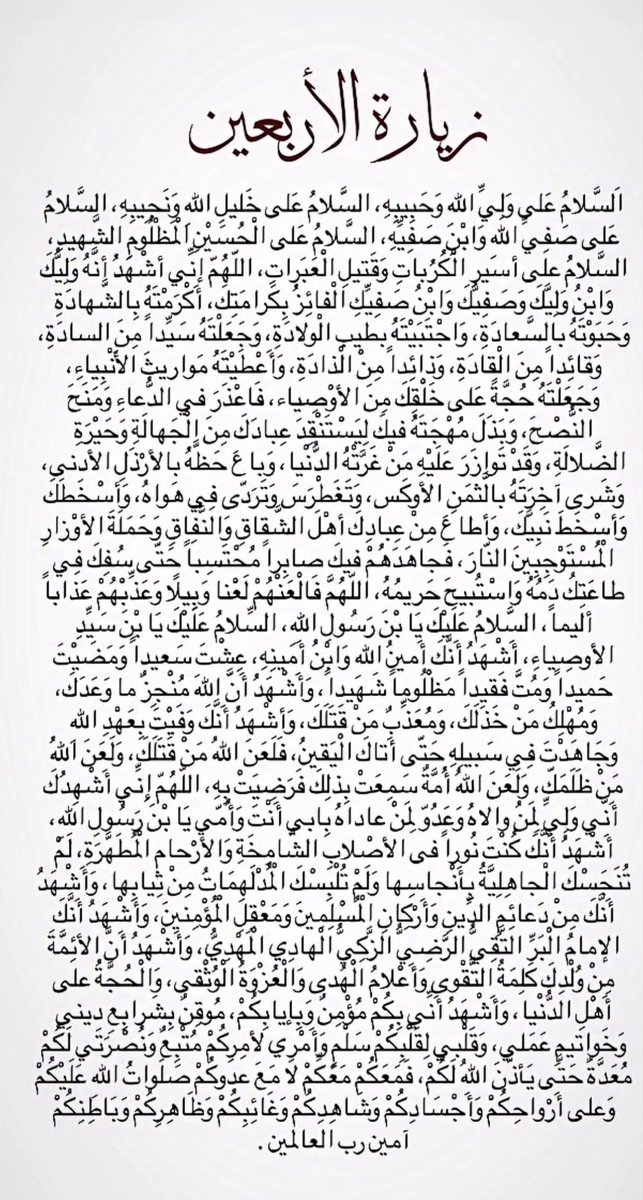 زيارة الأربعين
اَلسَّلامُ عَلى وَلِيِّ الله وَحَبيبِهِ، السَّلامُ عَلى خَليلِ الله وَنَجيبِهِ، السَّلامُ
عَلى صَفِيِّ الله وَابْنِ صَفِيِّهِ، السَّلامُ عَلى الْحُسَيْنِ الْمَظْلُومِ الشَّهيدِ،
السَّلامُ على أسيرِ الْكُرُباتِ وَقَتيلِ الْعَبَراتِ، اللّهُمّ إنّي أشْهَدُ أنَّهُ وَلِيُّكَ
وَابْنُ وَلِيِّكَ وَصَفِيُّكَ وَابْنُ صَفِيِّكَ الْفائِزُ بِكَرامَتِكَ، أكْرَمْتَهُ بِالشَّهادَةِ
وَحَبَوْتَهُ بِالسَّعادَةِ، وَاجْتَبَيْتَهُ بِطيبِ الْوِلادَةِ، وَجَعَلْتَهُ سَيِّداً مِنَ السادَةِ،
وَقائداً مِنَ الْقادَةِ، وَذائِداً مِنْ الْذادَةِ، وَأعْطَيْتَهُ مَواريثَ الأنْبِياءِ،
وَجَعَلْتَهُ حُجَّةً عَلى خَلْقِكَ مِنَ الأوْصِياءِ، فَاعْذَرَ فىِ الدُّعاءِ وَمَنَحَ
النُّصْحَ، وَبَذَلَ مُهْجَتَهُ فيكَ لِيَسْتَنْقِذَ عِبادَكَ مِنَ الْجَهالَةِ وَحَيْرَةِ
الضَّلالَةِ، وَقَدْ تَوازَرَ عَلَيْهِ مَنْ غَرَّتْهُ الدُّنْيا، وَباعَ حَظَّهُ بِالأرْذَلِ الأدْنى،
وَشَرى آخِرَتَهُ بالثَّمَنِ الأوْكَسِ، وَتَغَطْرَسَ وَتَرَدّى فِي هَواهُ، وَأسْخَطَكَ
وَأسْخَطَ نَبِيَّكَ، وَأطاعَ مِنْ عِبادِكَ أهْلَ الشِّقاقِ وَالنِّفاقِ وَحَمَلَةَ الأوْزارِ
الْمُسْتَوْجِبينَ النّارَ، فَجاهَدَهُمْ فيكَ صابِراً مُحْتَسِباً حَتّى سُفِكَ فِي
طاعَتِكَ دَمُهُ وَاسْتُبيحَ حَريمُهُ، اللّهُمَّ فَالْعَنْهُمْ لَعْنا وَبيلاً وَعَذِّبْهُمْ عَذاباً
أليماً، السَّلامُ عَلَيْكَ يَا بْنَ رَسُولِ الله، السَّلامُ عَلَيْكَ يَا بْنَ سَيِّدِ
الأوصِياءِ، أشْهَدُ أنَّكَ أمينُ الله وَابْنُ أمينِهِ، عِشْتَ سَعيداً وَمَضَيْتَ
حَميداً وَمُتَّ فَقيداً مَظْلُوماً شَهيداً، وَأشْهَدُ أنَّ اللهَ مُنْجِزٌ ما وَعَدَكَ،
وَمُهْلِكٌ مَنْ خَذَلَكَ، وَمُعَذِّبٌ مَنْ قَتَلَكَ، وَأشْهَدُ أنَّكَ وَفَيْتَ بِعَهْدِ الله
وَجاهَدْتَ فِي سَبيلِهِ حَتّى أتاكَ الْيَقينُ، فَلَعَنَ اللهُ مَنْ قَتَلَكَ، وَلَعَنَ اللهُ
مَنْ ظَلَمَكَ، وَلَعَنَ اللهُ أُمَّةً سَمِعَتْ بِذلِكَ فَرَضِيَتْ بِهِ، اللّهُمّ إنّي أشْهِدُكَ
أنّي وَلِيٌّ لِمَنْ والاهُ وَعَدُوّ لِمَنْ عاداهُ بِابي أنْتَ وَأمّي يَا بْنَ رَسُولِ الله،
أشْهَدُ أنَّكَ كُنْتَ نُوراً فى الأصْلابِ الشّامِخَةِ وَالأرْحامِ الْمُطَهَّرَةِ، لَمْ
تُنَجِّسْكَ الْجاهِلِيَّةُ بِأنْجاسِها وَلَمْ تُلْبِسْكَ الْمُدْلَهِمّاتُ مِنْ ثِيابِها، وَأشْهَدُ
أنَّكَ مِنْ دَعائِمِ الدّينِ وَأرْكانِ الْمُسْلِمينَ وَمَعْقِلِ الْمُؤْمِنينَ، وَأشْهَدُ أنَّكَ
الإمامُ الْبَرُّ التَّقِيُّ الرَّضِيُّ الزَّكِيُّ الْهادِي الْمَهْدِيُّ، وَأشْهَدُ أنَّ الأئِمَّةَ
مِنْ وُلْدِكَ كَلِمَةُ التَّقْوى وَأعْلامُ الْهُدى وَالْعُرْوَةُ الْوُثْقى، وَالْحُجَّةُ على
أهْلِ الدُّنْيا، وَأشْهَدُ أنّي بِكُمْ مُؤْمِنٌ وَبِإيابِكُمْ، مُوقِنٌ بِشَرايِعِ ديني
وَخَواتيمِ عَمَلي، وَقَلْبي لِقَلْبِكُمْ سِلْمٌ وَأمْري لأمْرِكُمْ مُتَّبِعٌ وَنُصْرَتي لَكُمْ
مُعَدَّةٌ حَتّى يَأذَنَ اللهُ لَكُمْ، فَمَعَكُمْ مَعَكُمْ لا مَعَ عدوكُمْ صَلَواتُ الله عَلَيْكُمْ
وَعلى أرْواحِكُمْ وَأجْسادِكُمْ وَشاهِدِكُمْ وَغائِبِكُمْ وَظاهِرِكُمْ وَباطِنِكُمْ
آمين رب العالمين.